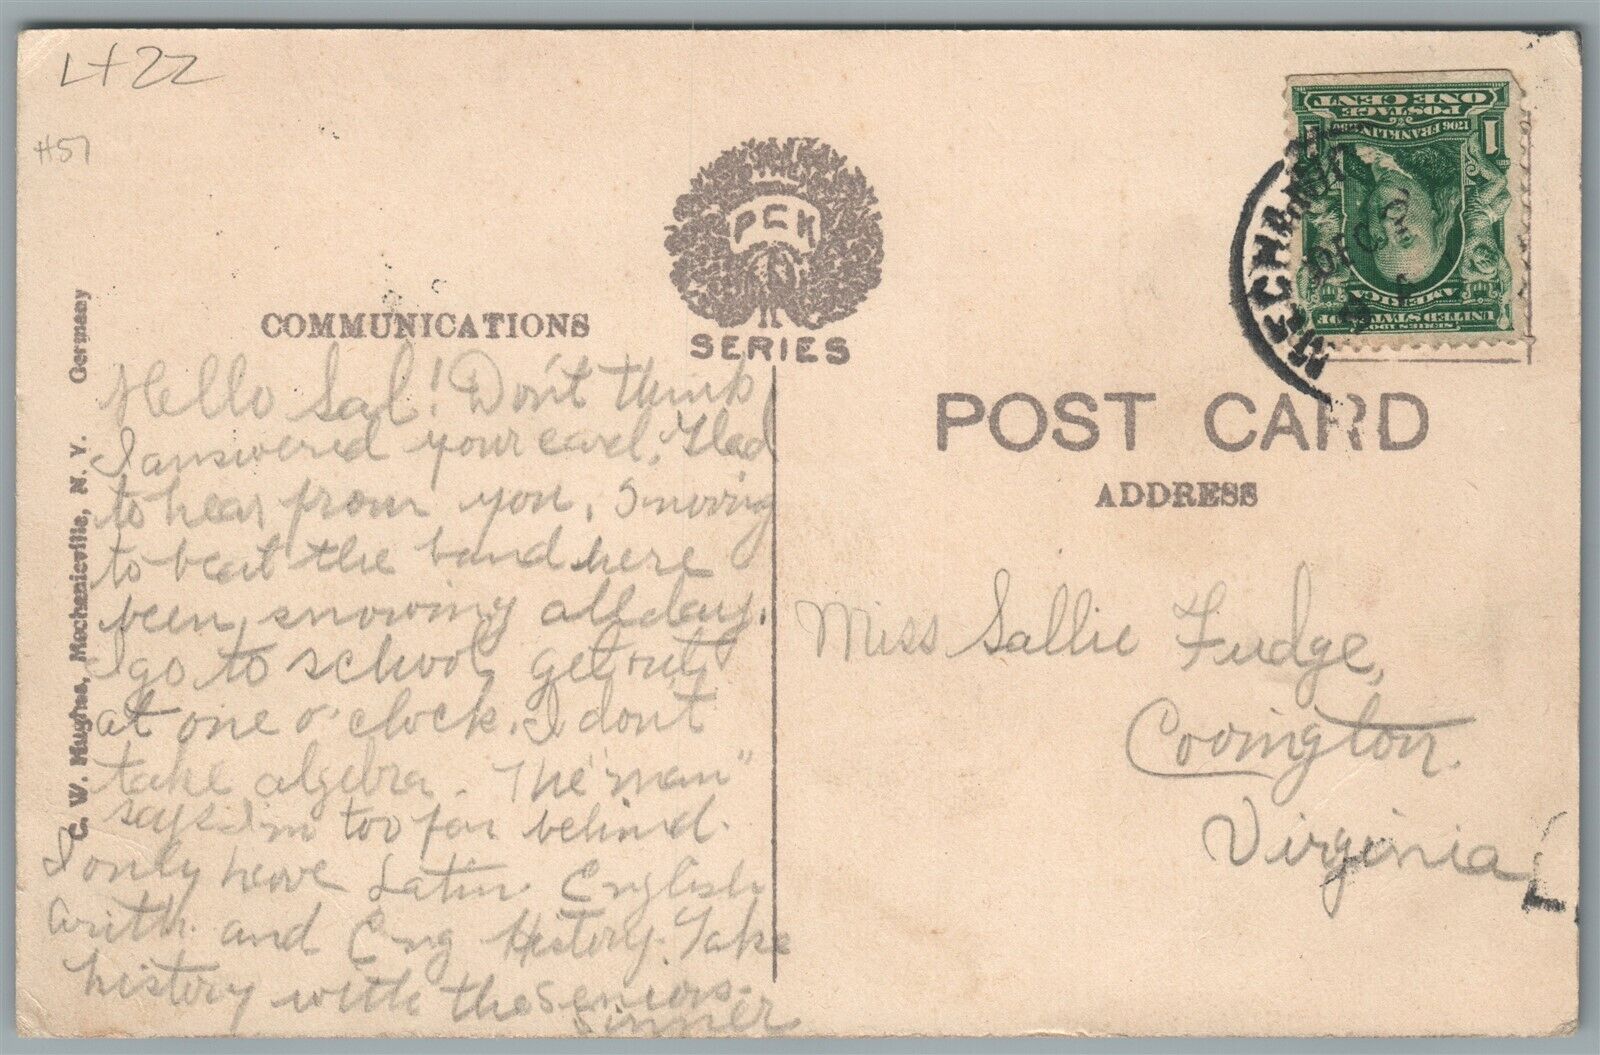 L+22
#57
C. W. Hughes, Mechanicville, N. Y. Germany
PCK
SERIES
COMMUNICATIONS
Hello Sal! Don't think
I answered your card. Glad
to hear from you. Snowing
to beat the band here
been snowing all day.
I go to school, get out
at one o'clock. I dont
take algebra. The "man"
says I'm too far behind.
I only have Latin English
Arith. and Eng History. Take
history with the seniors.
Sinner
POST CARD
ADDRESS
Miss Sallie Fudge,
Covington.
Virginia
SERIES 1902
UNITED STATES OF
AMERICA
1706 FRANKLIN 1790
POSTAGE
ONE CENT
1 1
DEC